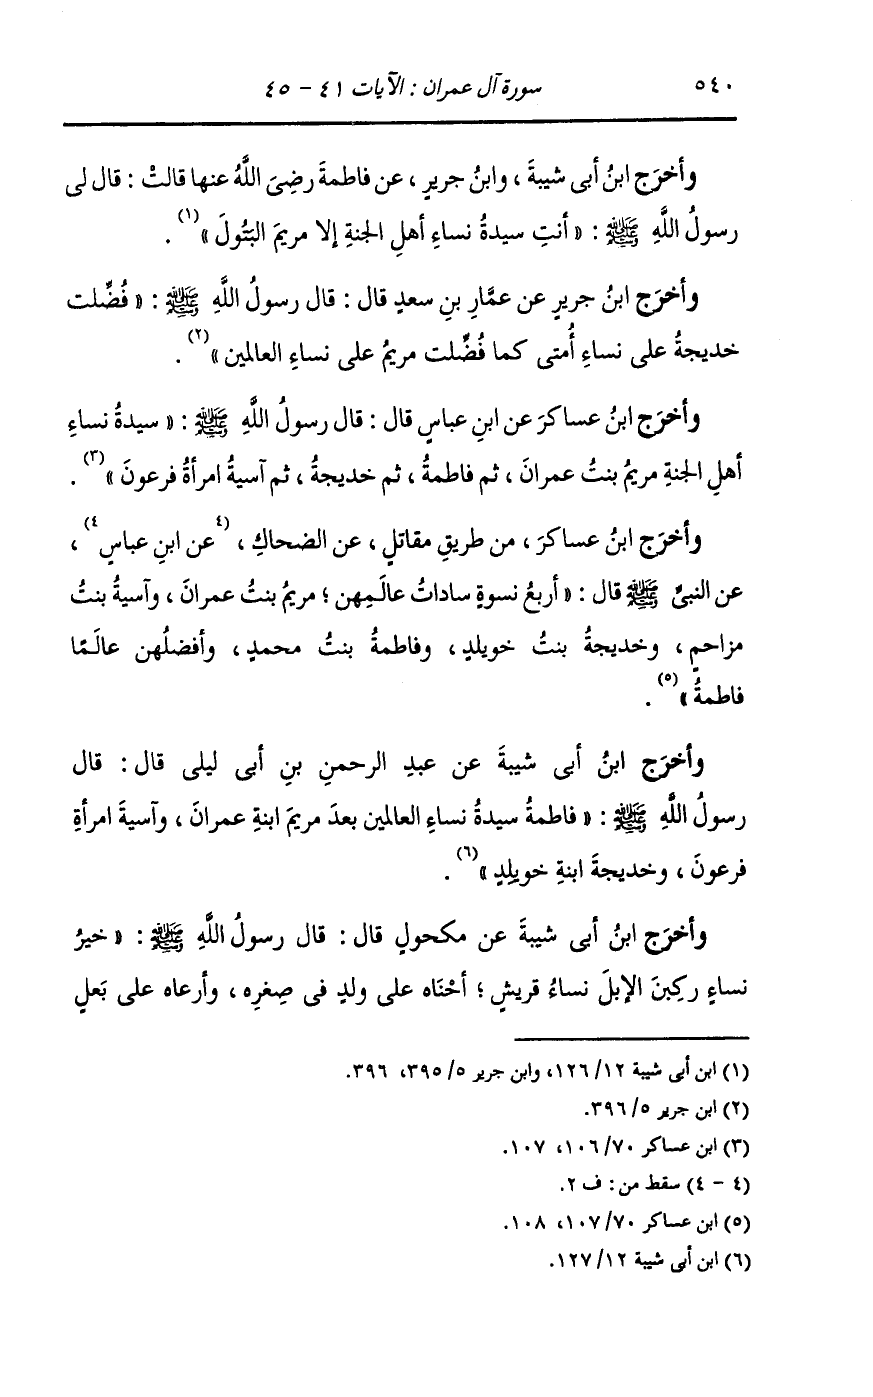 ٥٤٠ سورة آل عمران : الآيات ٤١ - ٤٥
وأخرَج ابنُ أبى شيبةَ ، وابنُ جريرٍ ، عن فاطمةَ رضِىَ اللَّهُ عنها قالتْ : قال لى
رسولُ اللَّهِ ﷺ : « أنتِ سيدةُ نساءِ أهلِ الجنةِ إلا مريمَ البَتُولَ »(١) .
وأخرَج ابنُ جريرٍ عن عمَّارِ بنِ سعدٍ قال : قال رسولُ اللَّهِ ﷺ : « فُضِّلت
خديجةُ على نساءِ أُمتى كما فُضِّلت مريمُ على نساءِ العالمين »(٢) .
وأخرَج ابنُ عساكرَ عن ابنِ عباسٍ قال : قال رسولُ اللَّهِ ﷺ : « سيدةُ نساءِ
أهلِ الجنةِ مريمُ بنتُ عمرانَ ، ثم فاطمةُ ، ثم خديجةُ ، ثم آسيةُ امرأةُ فرعونَ »(٣) .
وأخرَج ابنُ عساكرَ ، من طريقِ مقاتلٍ ، عن الضحاكِ ، (٤عن ابنِ عباسٍ٤) ،
عن النبىِّ ﷺ قال : « أربعُ نسوةٍ ساداتُ عالَمِهن ؛ مريمُ بنتُ عمرانَ ، وآسيةُ بنتُ
مزاحمٍ ، وخديجةُ بنتُ خويلدٍ ، وفاطمةُ بنتُ محمدٍ ، وأفضلُهن عالَمًا
فاطمةُ »(٥) .
وأخرَج ابنُ أبى شيبةَ عن عبدِ الرحمنِ بنِ أبى ليلى قال : قال
رسولُ اللَّهِ ﷺ : « فاطمةُ سيدةُ نساءِ العالمين بعدَ مريمَ ابنةِ عمرانَ ، وآسيةَ امرأةِ
فرعونَ ، وخديجةَ ابنةِ خويلِدٍ »(٦) .
وأخرَج ابنُ أبى شيبةَ عن مكحولٍ قال : قال رسولُ اللَّهِ ﷺ : « خيرُ
نساءٍ ركِبنَ الإبلَ نساءُ قريشٍ ؛ أحْنَاه على ولدٍ فى صِغرِه ، وأرعاه على بَعلٍ
(١) ابن أبى شيبة ١٢/ ١٢٦، وابن جرير ٥/ ٣٩٥، ٣٩٦.
(٢) ابن جرير ٥/ ٣٩٦.
(٣) ابن عساكر ٧٠/ ١٠٦، ١٠٧.
(٤ - ٤) سقط من : ف ٢.
(٥) ابن عساكر ٧٠/ ١٠٧، ١٠٨.
(٦) ابن أبى شيبة ١٢/ ١٢٧.